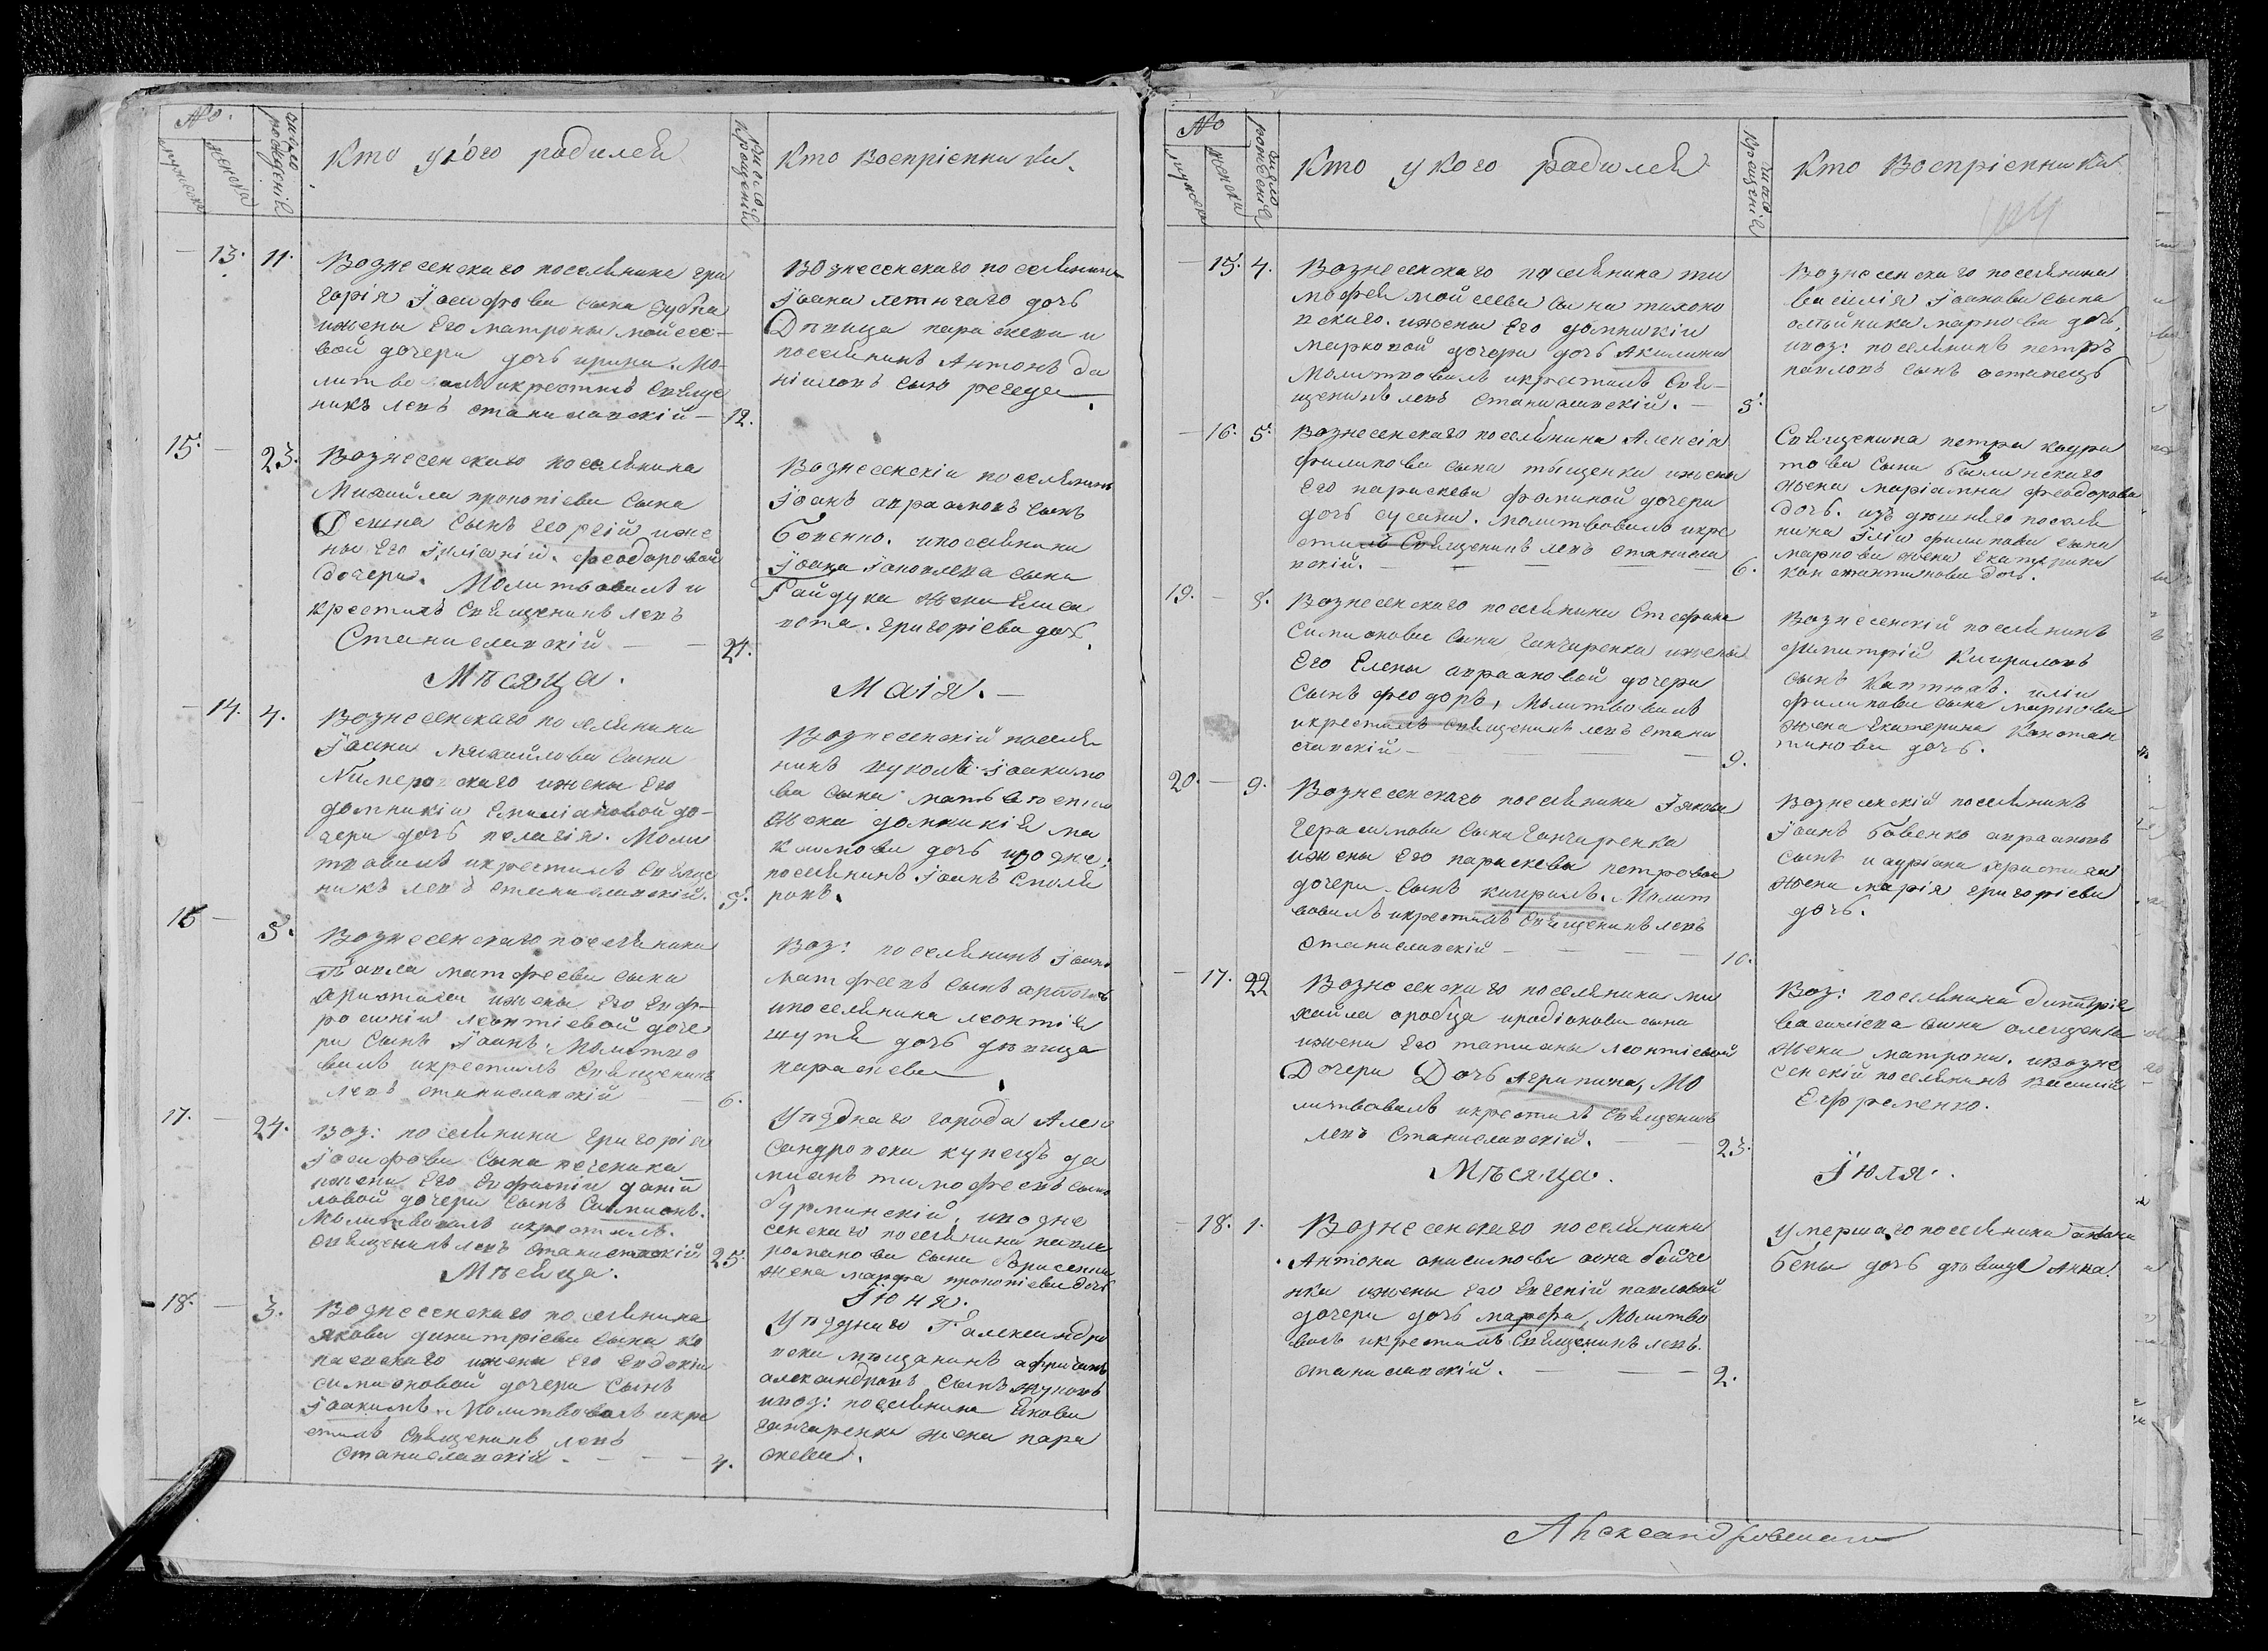 №.
мужеска
женска
число рожденій
Кто у кого родился
число крещенія
Кто Воспріемники.
13. 11.
Вознесенскаго поселянина гри
горія Іосифова сына зубка
ижены Его матроны мойсее-
вой дочери дочь ирина. Мо-
литвовалъ икрестилъ Свяще
никъ левъ станиславскій — 12.
Вознесенскаго поселянина
Іоана летнчаго дочь
Дѣвица параскева и
поселянинъ Антонъ да
ніиловъ сынъ регеда
15. 23.
Вознесенскаго поселянина
Михайла прокопіева Сына
Сынъ георгій иже
ны Его Іуліаніи. феодоровой
дочери. Молитвовалъ и
крестилъ Священикъ левъ
Станиславскій — — 24.
Вознесенскіи поселянинъ
Іоанъ авраамовъ сынъ
бовенко. ипоселянина
Іоана Іаковлева сына
Гайдука жена Елиса
вета. григоріева дочь.
Мѣсяца.
Маія. —
14. 4.
Вознесенскаго поселянина
Іоана михайлова Сына
ижены Его
домникіи Емиліановой до-
чери дочь пелагія. Моли
твовалъ икрестилъ Свяще
никъ левъ станиславскій. 5.
Вознесенскій поселя
нинъ вуколъ Іоакимо
ва сына матвѣенка
жена домникія ма
кимова дочь ивозне:
поселянинъ Іоанъ столя
ровъ.
16 5.
Вознесенскаго поселянина
Павла матфеева сына
христича ижены Его Евф-
росиніи леонтіевой доче
ри Сынъ Іоанъ. Молитво
валъ икрестилъ Священикъ
левъ станиславскій — 6.
Воз: поселянинъ Іоанъ
матфеевъ сынъ
ипоселянина леонтія
шутя дочь дѣвица
параскева
17. 24.
Воз: поселянина григорія
Іосифова Сына печеника
ижены Его Евфиміи даніи
ловой дочери Сынъ Симионъ.
Молитвовалъ икрестилъ.
священикъ левъ станиславскій 25.
Уѣзднаго города Алек
сандровска купецъ да
миянъ тимофеевъ сынъ
бурминскій. ивозне
сенскаго поселянина павла
романова сына борисенка
жена марфа прокопіева дочь
Мѣсяца.
Іюня.
18. 3.
Вознесенскаго поселянина
якова димитріева сына ко
паевскаго ижены Его Евдокіи
симионовой дочери Сынъ
Іоакимъ. Молитвовалъ икре
стилъ Священикъ левъ
Станиславскій. — — — 4.
Уѣзднаго Г александро
вска мѣщанинъ
александровъ сынъ жуковъ
ивоз: поселянина Якова
ганчаренка жена пара
скева.
№
мужеска
женска
число рожденія
Кто у кого родился
число крещенія
Кто Воспріемники
15. 4.
Вознесенскаго поселянина ти
мофея мойсеева Сына тихоно
вскаго. ижены Его домникіи
марковой дочери дочь Акилина
Молитвовалъ икрестилъ Свя-
щеникъ левъ Станиславскій. — 5.
Вознесенскаго поселянина
василія Іоанова сына
олейника маркова дочь.
ивоз: поселянинъ петръ
павловъ сынъ остапецъ
16. 5.
Вознесенскаго поселянина Алексія
филипова сына тыщенка ижены
Его параскевы фоминой дочери
дочь сусана. молитвовалъ икре
стилъ Священикъ левъ станисла
вскій. — — — 6.
Священика петра кондра
това Сына балинскаго
жена маріамна феодорова
дочь. издѣшняго поселя
нина Іліи филипова сына
маркова жена Екатерина
константинова дочь.
19. 8.
Вознесенскаго поселянина Стефана
Симионова сына ганчаренка ижены
Его Елены авраамовой дочери
Сынъ феодоръ, Молитвовалъ
икрестилъ Священикъ левъ стани
славскій — — 9.
Вознесенскій поселянинъ
димитрій Кириловъ
сынъ Каптюхъ. иліи
филипова сына маркова
жена Екатерина Констан
тинова дочь.
20. 9.
Вознесенскаго поселянина Іякова
герасимова сына ганчаренка
ижены Его параскевы петровой
дочери Сынъ кирилъ. Молит
вовалъ икрестилъ Священикъ левъ
станиславскій — — — 10.
Вознесенскій поселянинъ
Іоанъ бовенко авраамовъ
сынъ
жена марія григоріева
дочь.
17. 22
Вознесенскаго поселянина ми
хайла иродіонова сына
ижены Его татианы леонтіевой
Дочери Дочь Агрипина, Мо
литвовалъ икрестилъ Священикъ
левъ Станиславскій. — — 23.
Воз: поселянина димитрія
василіева сына олещенка
жена матрона. ивозне
сенскій поселянинъ василій
Ефременко.
Мѣсяца.
Іюля.
18. 1.
Вознесенскаго поселянина
Антона онисимова сына бойче
нка ижены Его Евгеніи павловой
дочери дочь марфа, Молитво
валъ икрестилъ Священикъ левъ.
станиславскій. — — 2.
Умершаго поселянина
дочь дѣвица Анна.